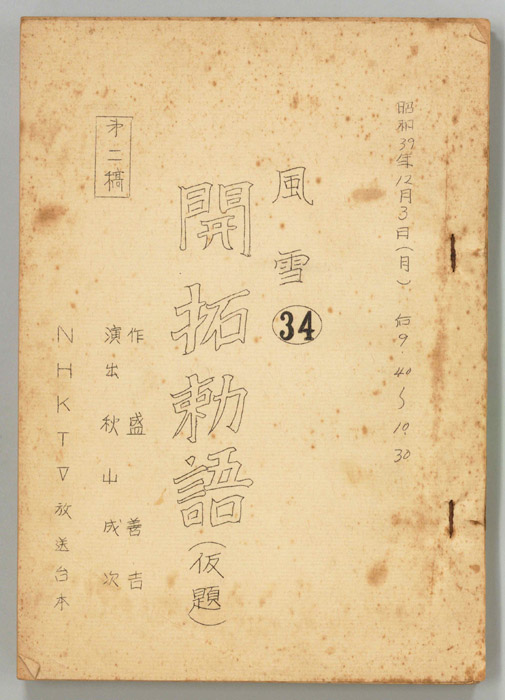 昭和39年12月3日(月) 后9.40〜10.30
風雪 34
開拓勅語(仮題)
第二稿
作 盛善吉
演出 秋山成次
NHKTV放送台本